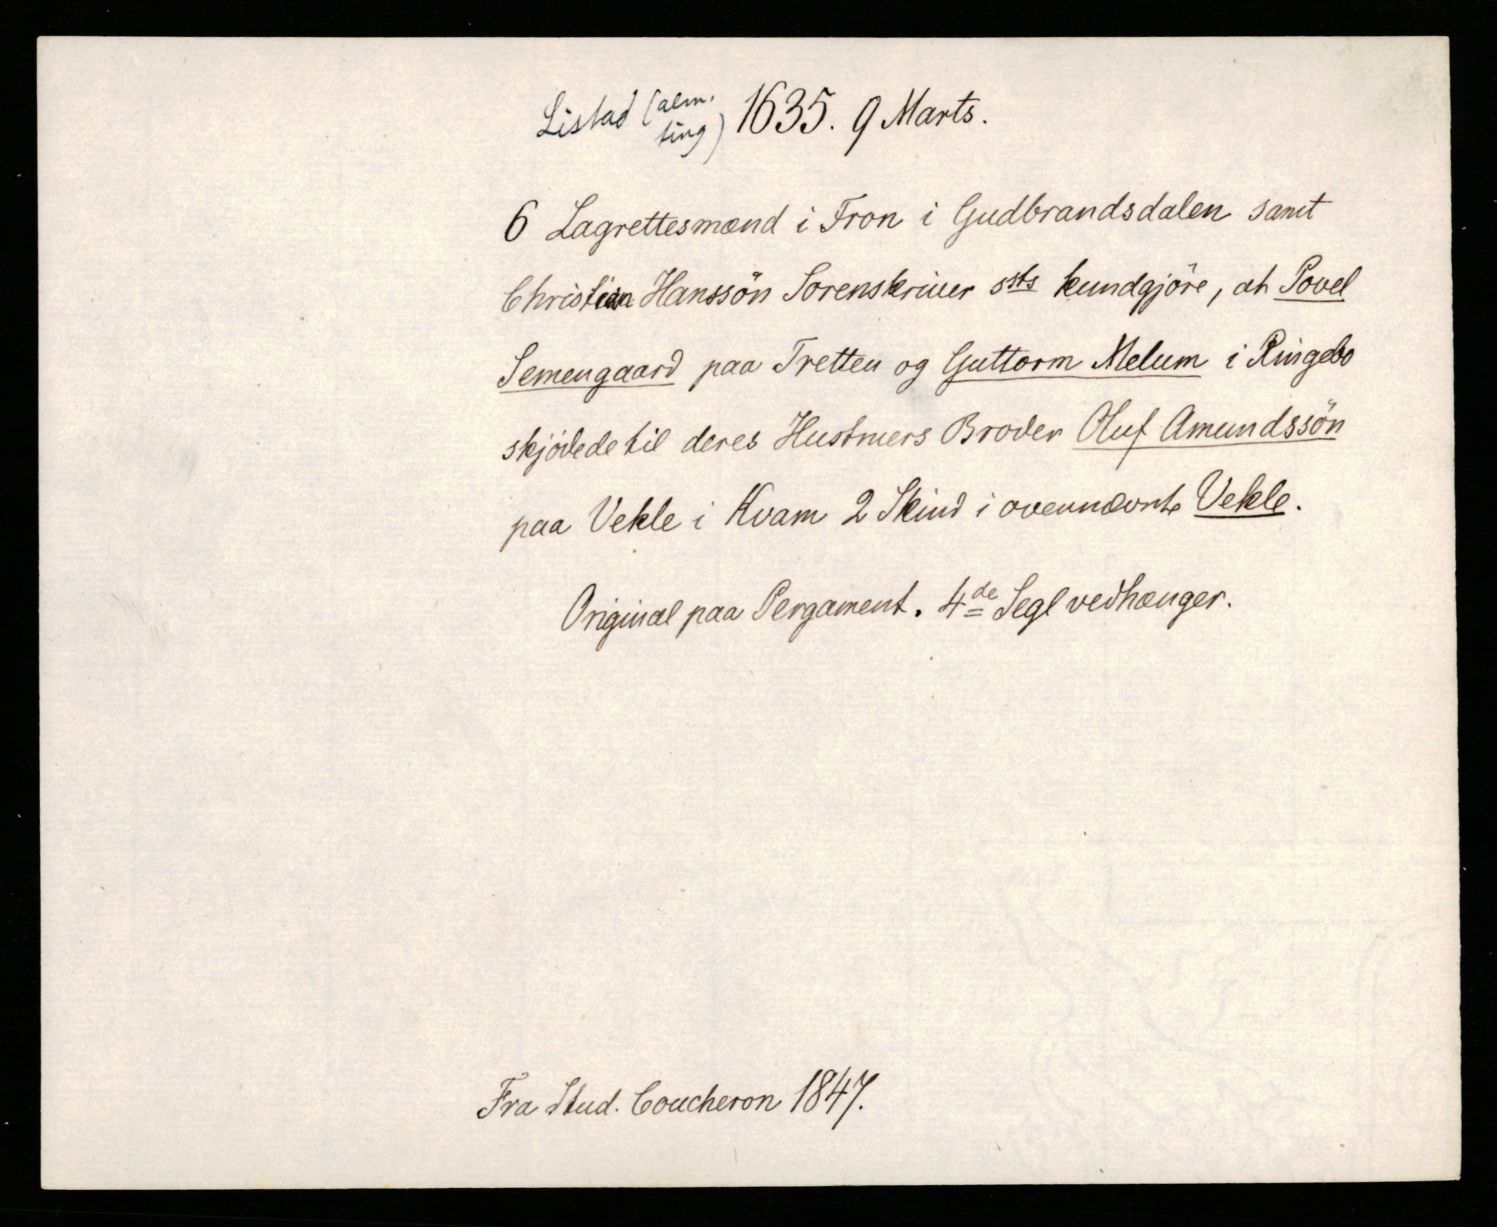 Listad (alm. ting) 1635. 9 Marts.
6 Lagrettesmænd i Fron i Gudbrandsdalen samt
Christian Hanssön Sorenskriuer ssts kundgjöre, at Povel
Semengaard paa Tretten og Guttorm Melum i Ringebo
skjödede til deres Hustruers Broder Oluf Amundssön
paa Vekle i Kvam 2 Skind i ovennævnte Vekle.
Original paa Pergament. 4de Segl vedhænger.
Fra Stud. Coucheron 1847.